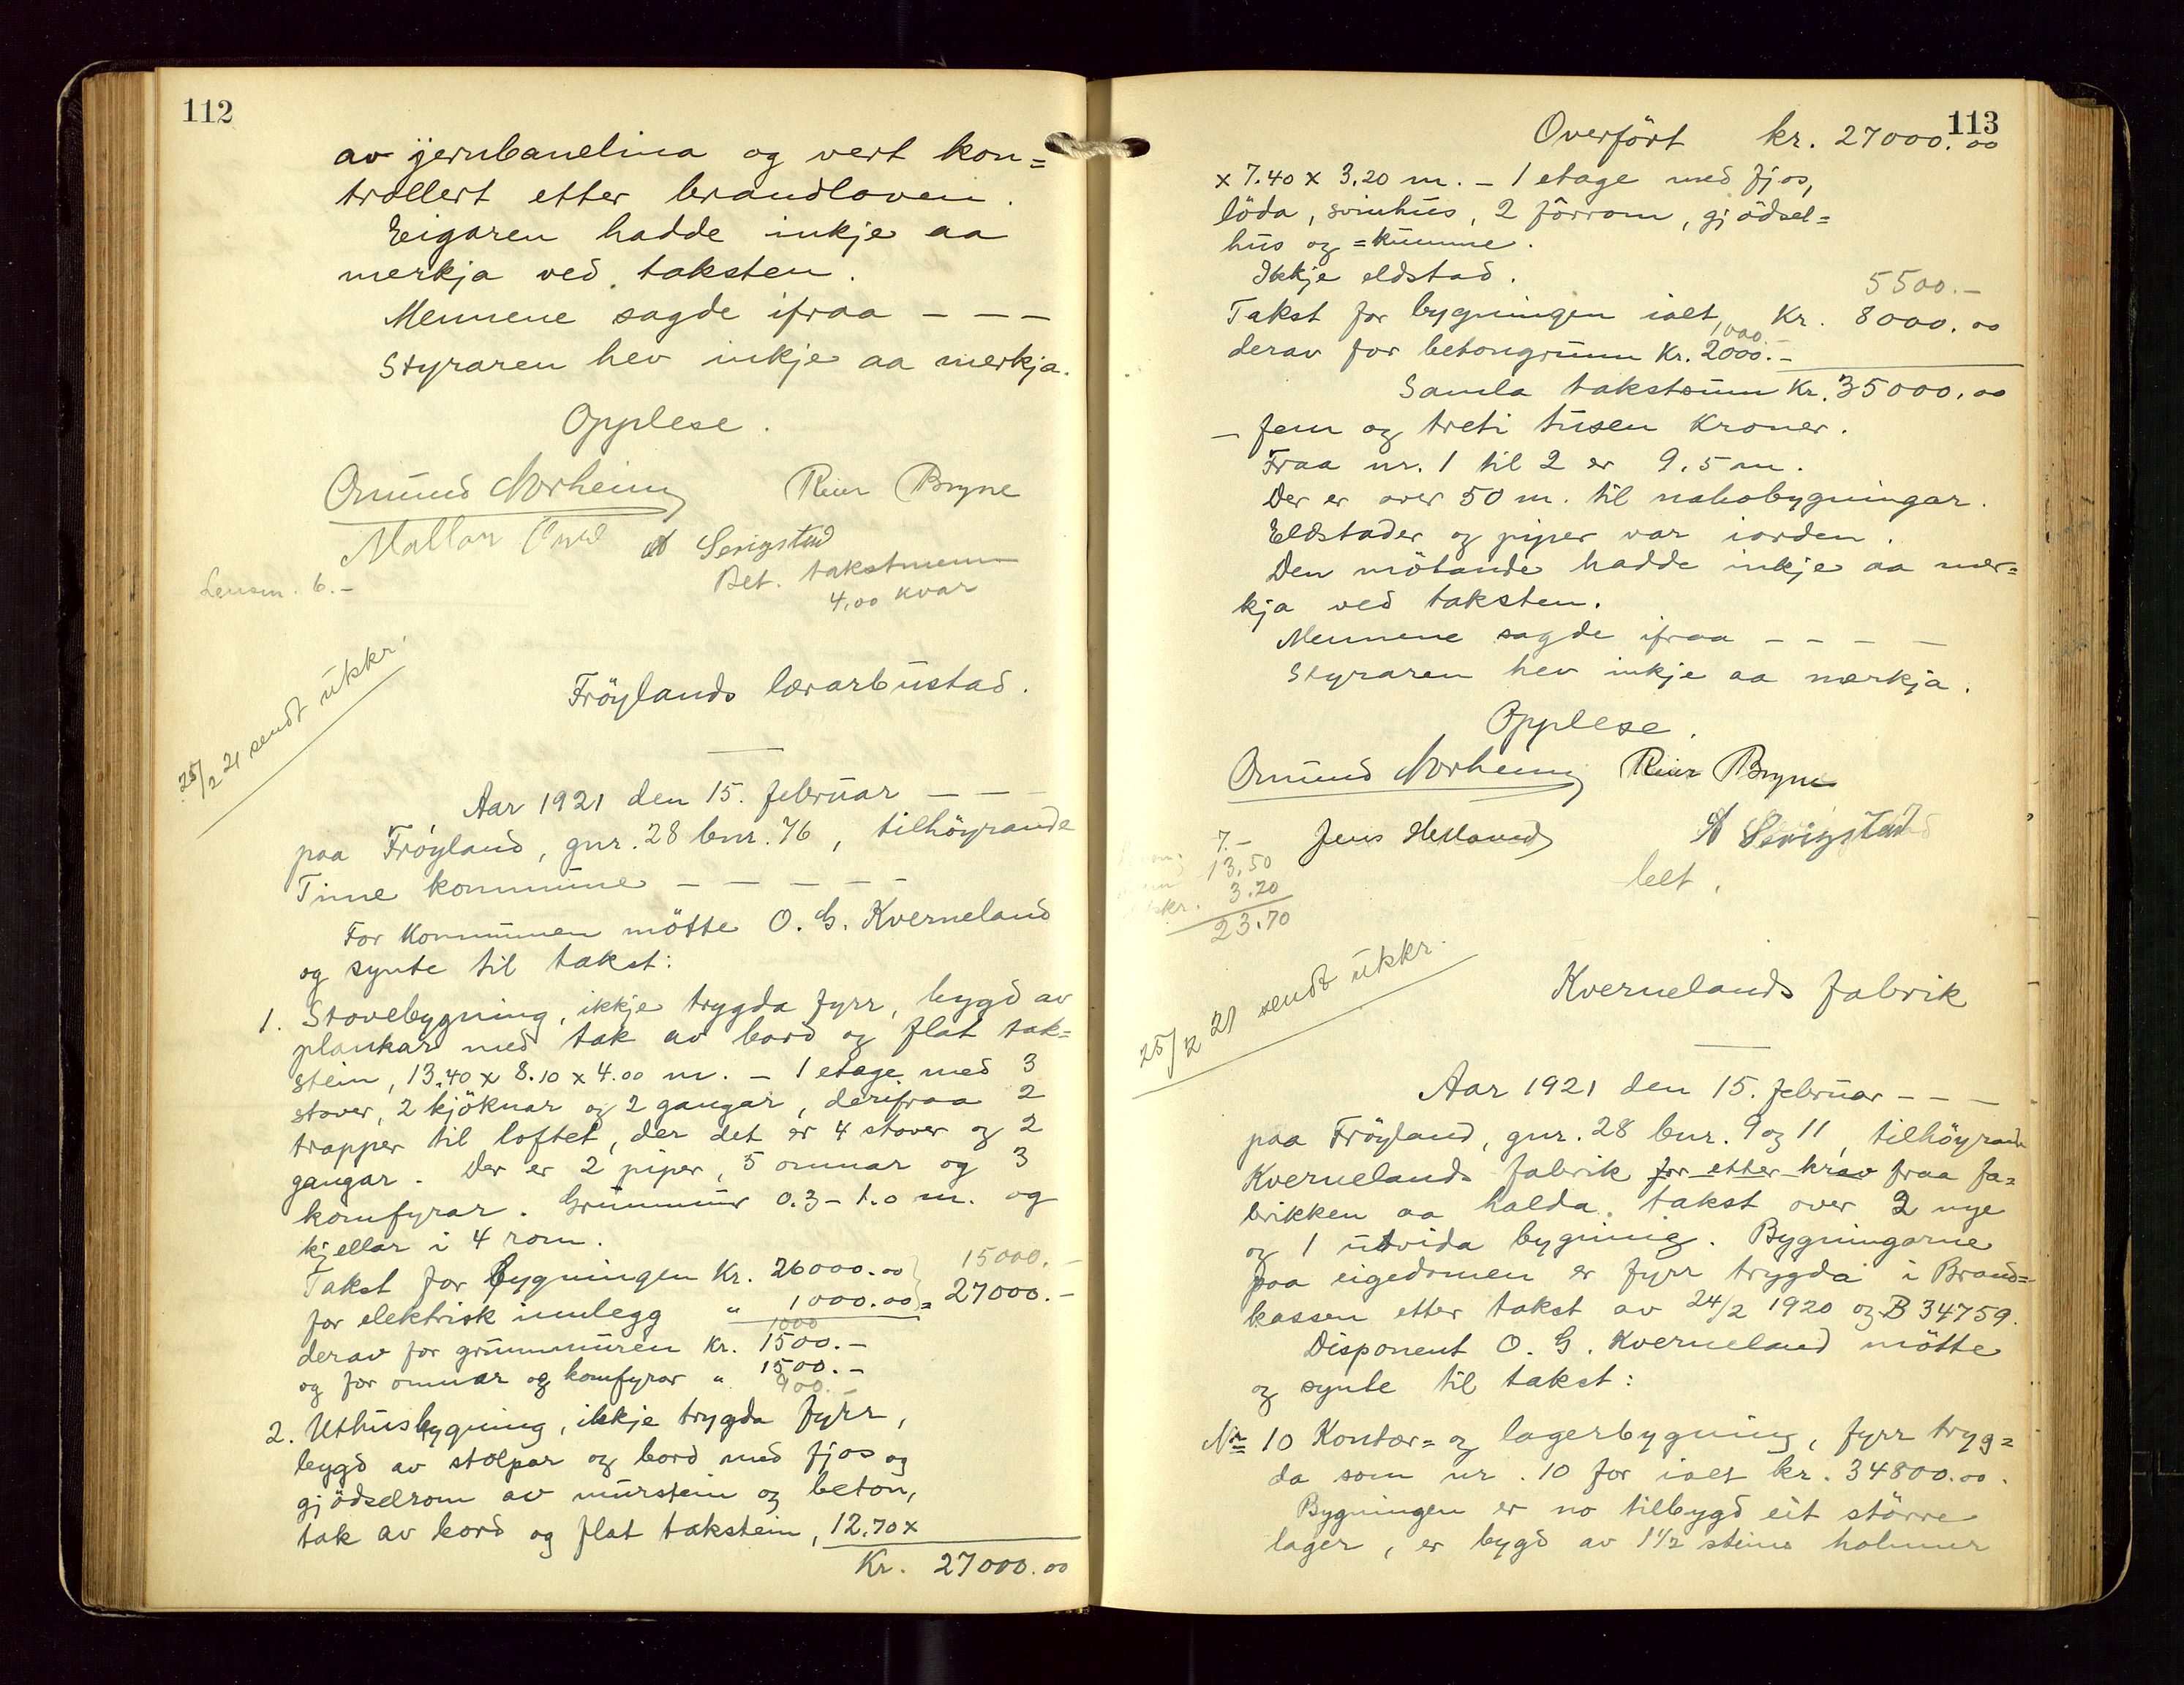 112
av jernbanelina og vert kon=
trollert etter brandloven.
Eigaren hadde inkje aa
merkja ved taksten.
Mennene sagde ifraa - - -
Styraren hev inkje aa merkja.
Opplese.
Omund Norheim Reier Bryne
A Serigstad
Bet. takstmenn
4,00 kvar
Lensm. 6.-
25/2 21 sendt utskr.
Fröylands lærarbustad.
Aar 1921 den 15. februar - - -
paa Fröyland, gnr. 28 bnr. 76, tilhöyrande
Time kommune - - - - -
For kommunen mötte O. G. Kverneland
og synte til takst:
1. Stovebygning, ikkje trygda fyrr, bygd av
plankar med tak av bord og flat tak=
stein, 13.40 x 8.10 x 4.00 m. - 1 etage med 3
stover, 2 kjöknar og 2 gangar, derifraa 2
trapper til loftet, der det er 4 stover og 2
gangar. Der er 2 piper, 5 omnar og 3
komfyrar. Grunnmur 0.3 - 1.0 m. og
kjellar i 4 rom.
Takst for bygningen Kr. 26000.00 15000.-
for elektrisk innlegg " 1000.00 = 27000.-
1000
derav for grunnmuren Kr. 1500.-
og for omnar og komfyrar " 1500.-
900.-
2. Uthusbygning, ikkje trygda fyrr,
bygd av stolpar og bord med fjos og
gjödselrom av murstein og beton,
tak av bord og flat takstein, 12.70 x
Kr. 27000.00
113
Overfört kr. 27000.00
x 7.40 x 3.20 m. - 1 etage med fjos,
löda, svinhus, 2 förrom, gjödsel=
hus og =kumme.
Ikkje eldstad.
5500.-
Takst for bygningen ialt, Kr. 8000.00
1000.-
derav for betongrunn Kr. 2000.-
Samla takstsum Kr. 35000.00
- fem og treti tusen Kroner.
Fraa nr. 1 til 2 er 9.5 m.
Der er over 50 m. til nabobygningar.
Eldstader og piper var iorden.
Den mötande hadde inkje aa mer=
kja ved taksten.
Mennene sagde ifraa - - - -
Styraren hev inkje aa merkja.
Opplese.
Omund Norheim Reier Bryne
Jens Hetland A Serigstad
bet.
7.-
13.50
3.20
23.70
25/2 21 sendt utskr.
Kvernelands fabrik
Aar 1921 den 15. februar - - -
paa Fröyland, gnr. 28 bnr. 9 og 11, tilhöyrande
Kvernelands fabrik for etter krav fraa fa=
brikken aa halda takst over 2 nye
og 1 utvida bygning. Bygningarne
paa eigedomen er fyrr trygda i Brand=
kassen etter takst av 24/2 1920 og B 34759.
Disponent O. G. Kverneland mötte
og synte til takst:
Nr 10 Kontor= og lagerbygning, fyrr tryg=
da som nr. 10 for ialt kr. 34800.00.
Bygningen er no tilbygd eit större
lager, er bygd av 1½ steins holmur